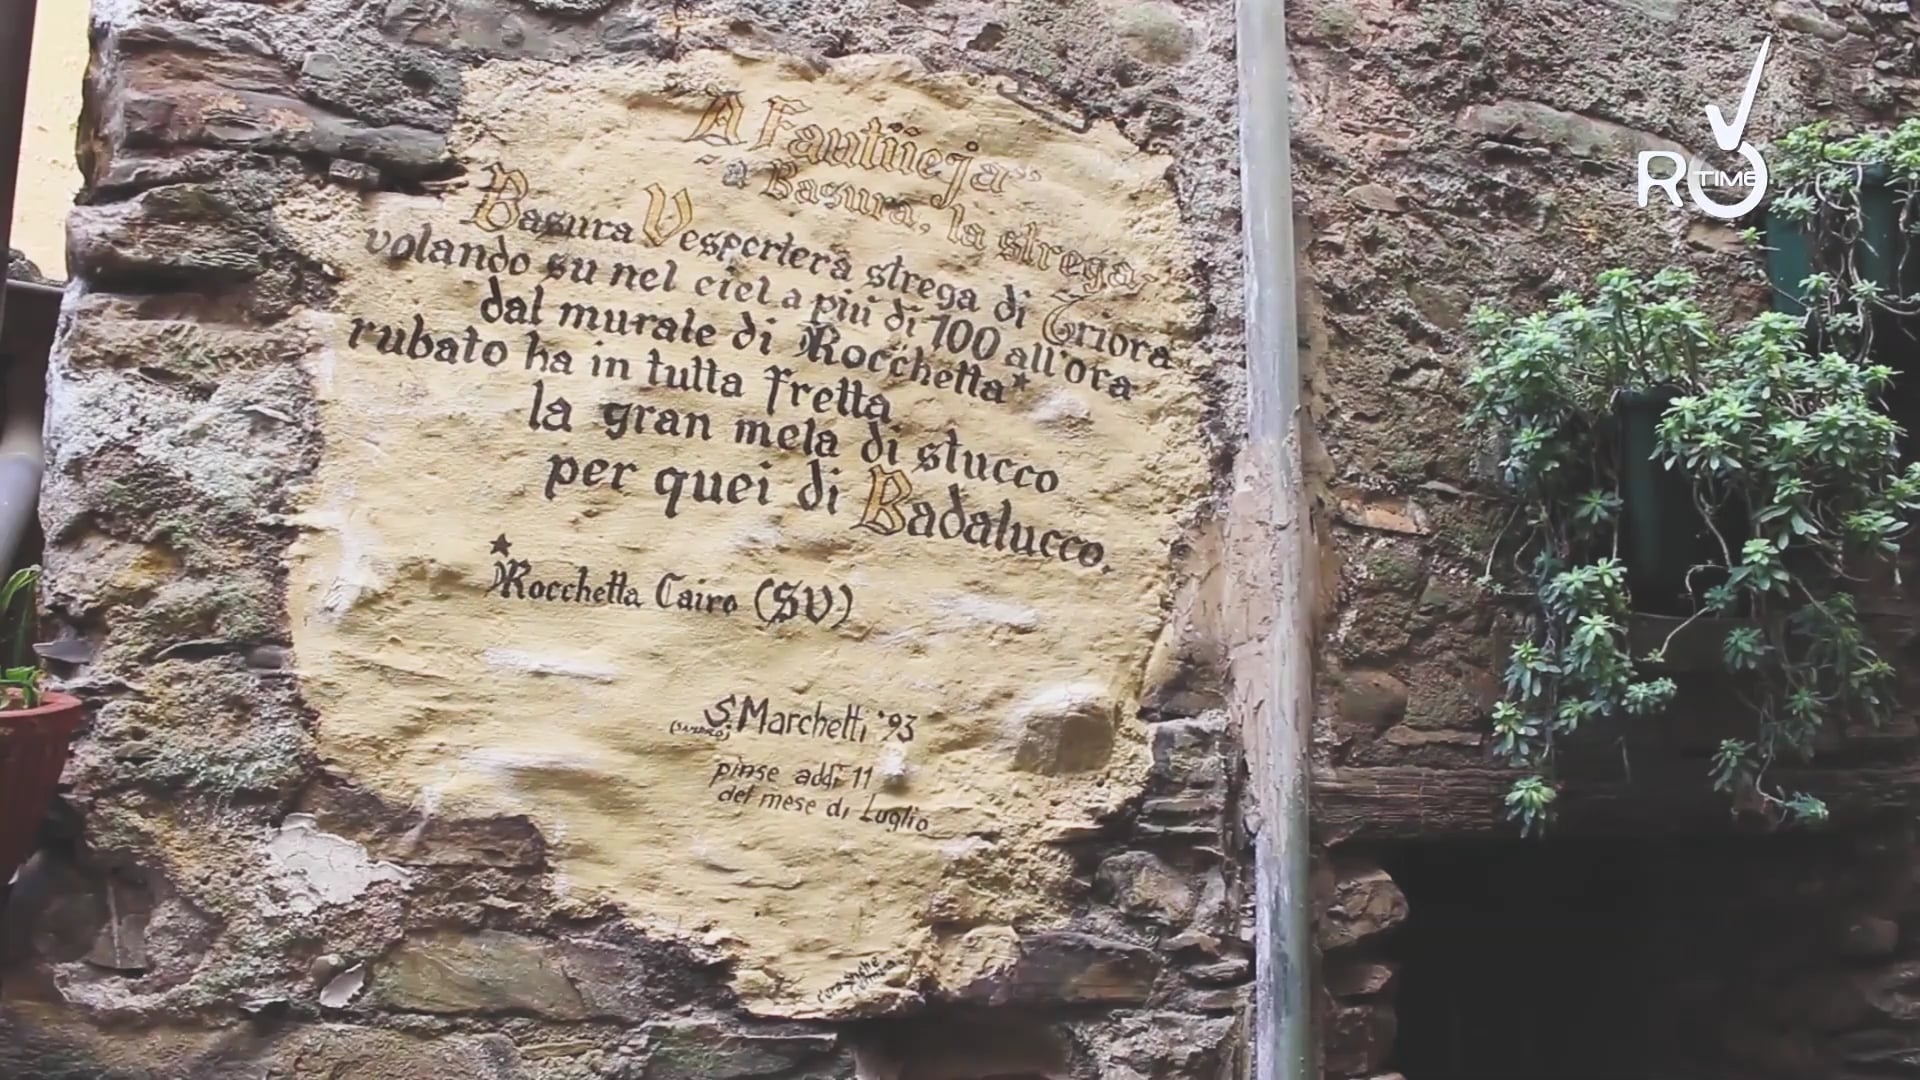 "A Fautüeja"
"a Basura, la strega"
Basura Vespertera strega di Triora
volando su nel ciel a più di 100 all'ora
dal murale di Rocchetta*
rubato ha in tutta fretta
la gran mela di stucco
per quei di Badalucco.
* Rocchetta Cairo (SV)
S. Marchetti '93
pinse addì 11
del mese di Luglio
RO TIME